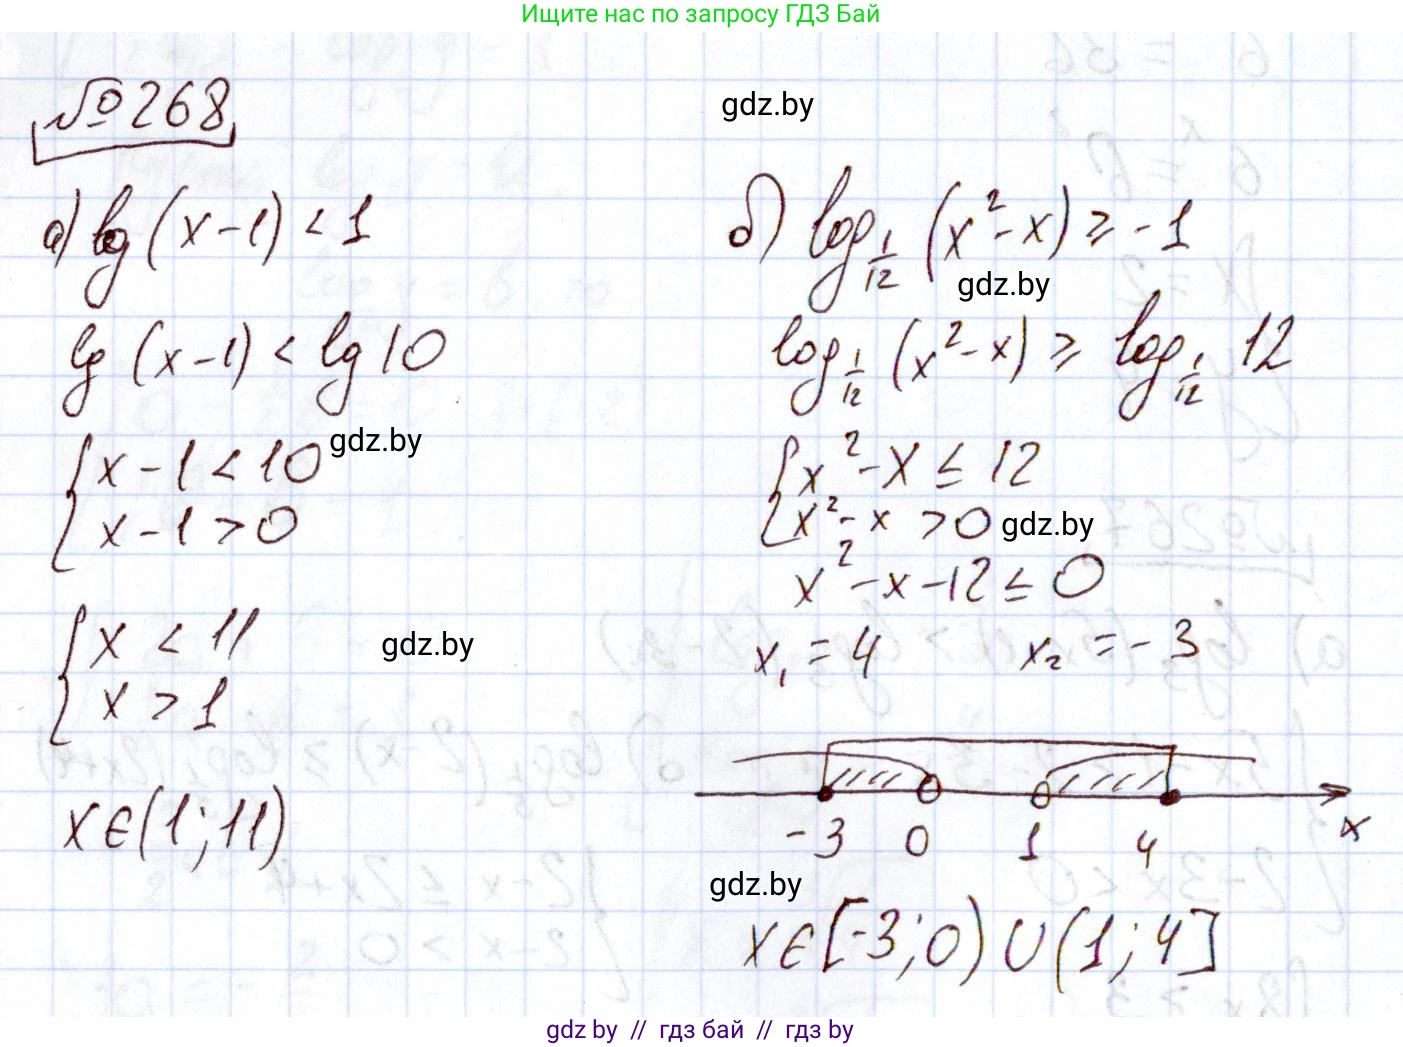 Ищите нас по запросу ГДЗ Бай
№268
gdz.by
а) lg (x-1) < 1
lg (x-1) < lg 10
gdz.by
{ x - 1 < 10
x - 1 > 0
{ x < 11
x > 1
gdz.by
x ∈ (1; 11)
б) log_{1/12} (x² - x) ≥ -1
gdz.by
log_{1/12} (x² - x) ≥ log_{1/12} 12
{ x² - x ≤ 12
x² - x > 0
gdz.by
x² - x - 12 ≤ 0
x₁ = 4 x₂ = - 3
-3 0 1 4 x
gdz.by
x ∈ [-3; 0) ∪ (1; 4]
gdz by // гдз бай // гдз by